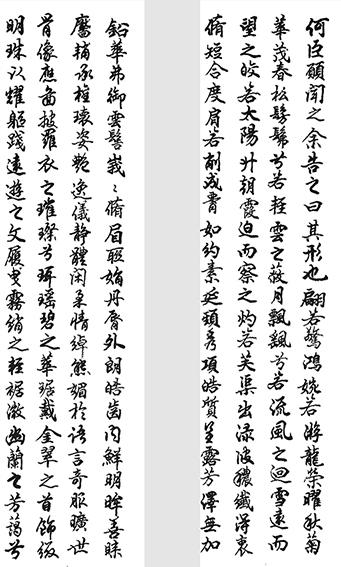 何臣願聞之余告之曰其形也翩若驚鴻婉若游龍榮曜秋菊
華茂春松髣髴兮若輕雲之蔽月飄飄兮若流風之迴雪遠而
望之皎若太陽升朝霞迫而察之灼若芙渠出淥波穠纖得衷
脩短合度肩若削成腰如約素延頸秀項皓質呈露芳澤無加
鉛華弗御雲髻峩〻脩眉聯娟丹脣外朗皓齒內鮮明眸善睞
靨輔承權瓌姿艷逸儀靜體閑柔情綽態媚於語言奇服曠世
骨像應圖披羅衣之璀璨兮珥瑤碧之華琚戴金翠之首飾綴
明珠以耀軀踐遠遊之文履曳霧綃之輕裾微幽蘭之芳藹兮